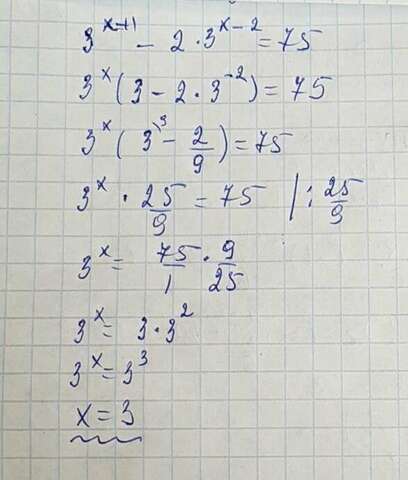 3^{x+1} - 2 · 3^{x-2} = 75
3^x (3 - 2 · 3^{-2}) = 75
3^x (3^{\9} - \frac{2}{9}) = 75
3^x · \frac{25}{9} = 75 | : \frac{25}{9}
3^x = \frac{75}{1} · \frac{9}{25}
3^x = 3 · 3^2
3^x = 3^3
x = 3